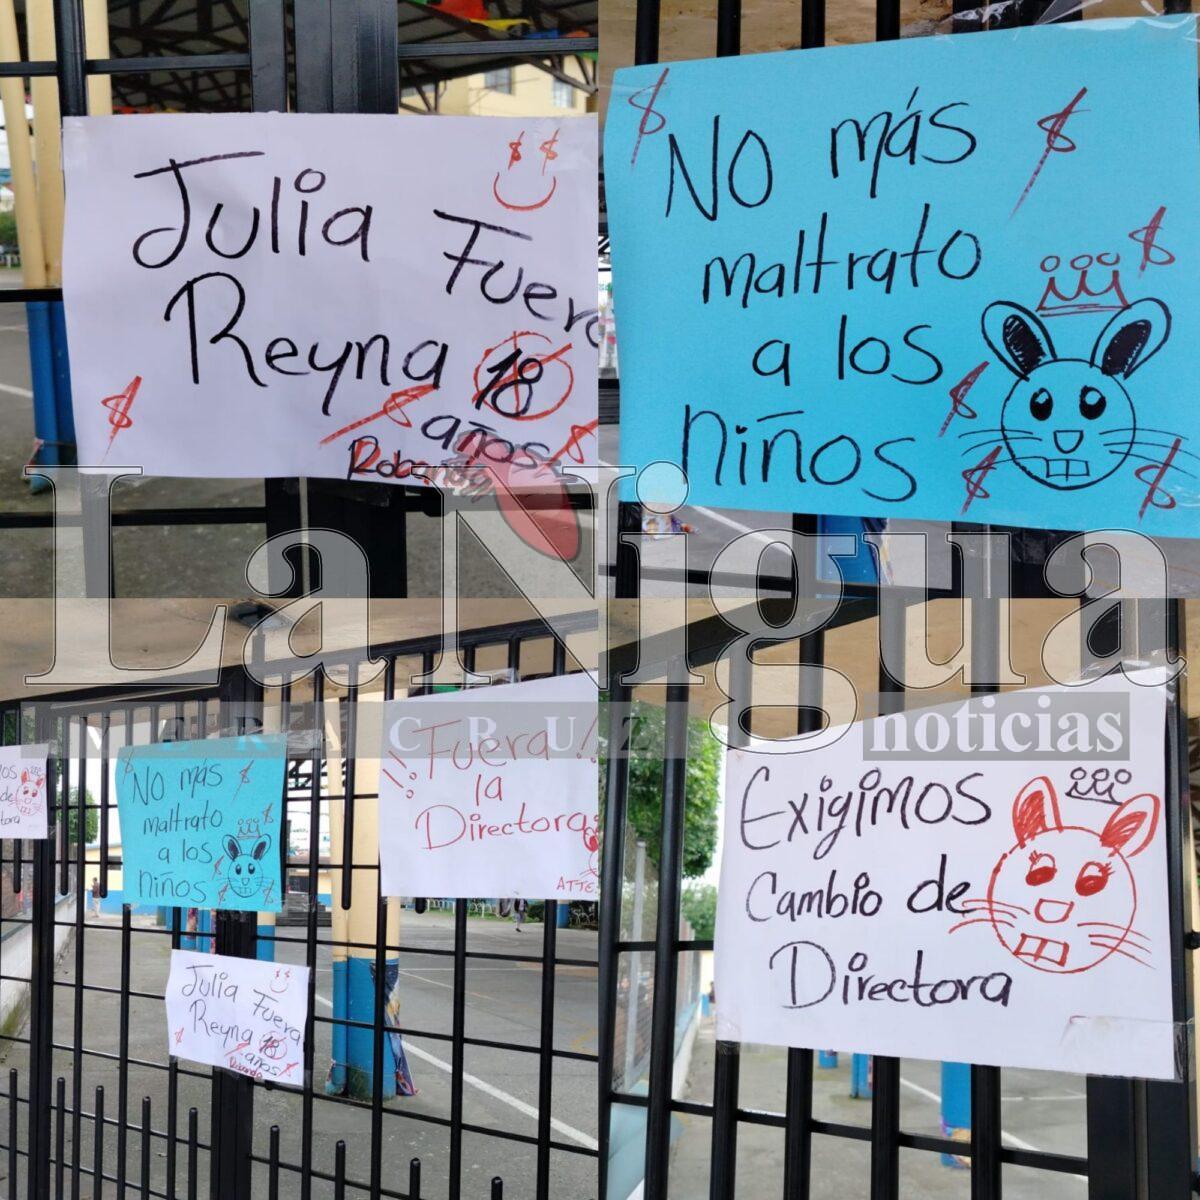 Julia Fuera
Reyna 18
años
Robando
No más
maltrato
a los
niños
LaNigua
VERACRUZ
noticias
No más
maltrato
a los
niños
Fuera!!
la
Directora
ATTE
Julia Fuera
Reyna 18
años
Robando
Exigimos
Cambio de
Directora